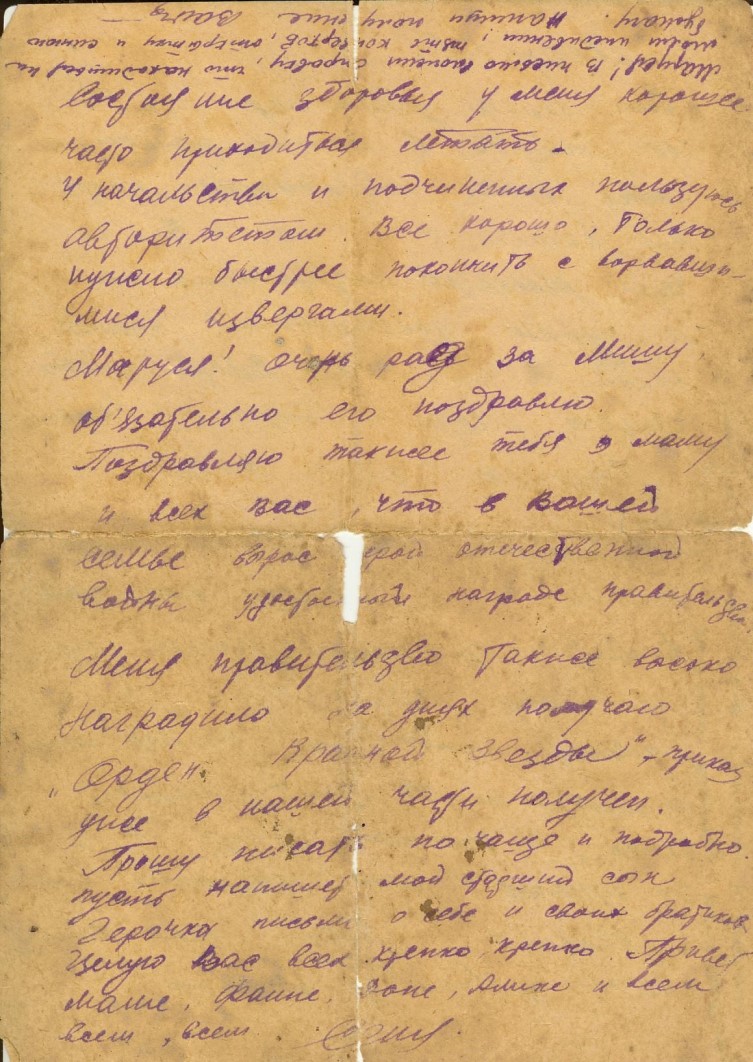 Состояние здоровья у меня хорошее
часто приходиться летать.
У начальства и подчиненных пользуюсь
авторитетом. Все хорошо, только
нужно быстрее покончить с ворвавши-
мися извергами.
Маруся! Очень рад за Мишу,
об'язательно его поздравлю.
Поздравляю также тебя и маму
и всех вас, что в вашей
семье вырос герой отечественной
войны удостоенный награде правительства.
Меня правительство также высоко
наградило на днях получаю
"Орден Красной Звезды" - приказ
уже в нашей части получен.
Прошу писать по чаще и подробно.
пусть напишет мой старший сын
Герочка письмо о себе и своих братиках
Целую вас всех крепко, крепко. Привет
маме, Фаине, Алике и всем
всем, всем.
Маруся! В письмо вложены справку, что находишься на
моем иждивении, конвертов, открытку и
бумагу. Напиши получение